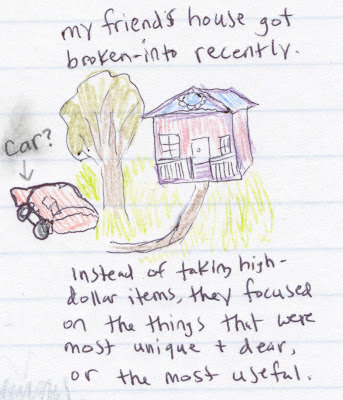 my friend's house got
broken-into recently.
car?
Instead of taking high-
dollar items, they focused
on the things that were
most unique + dear,
or the most useful.